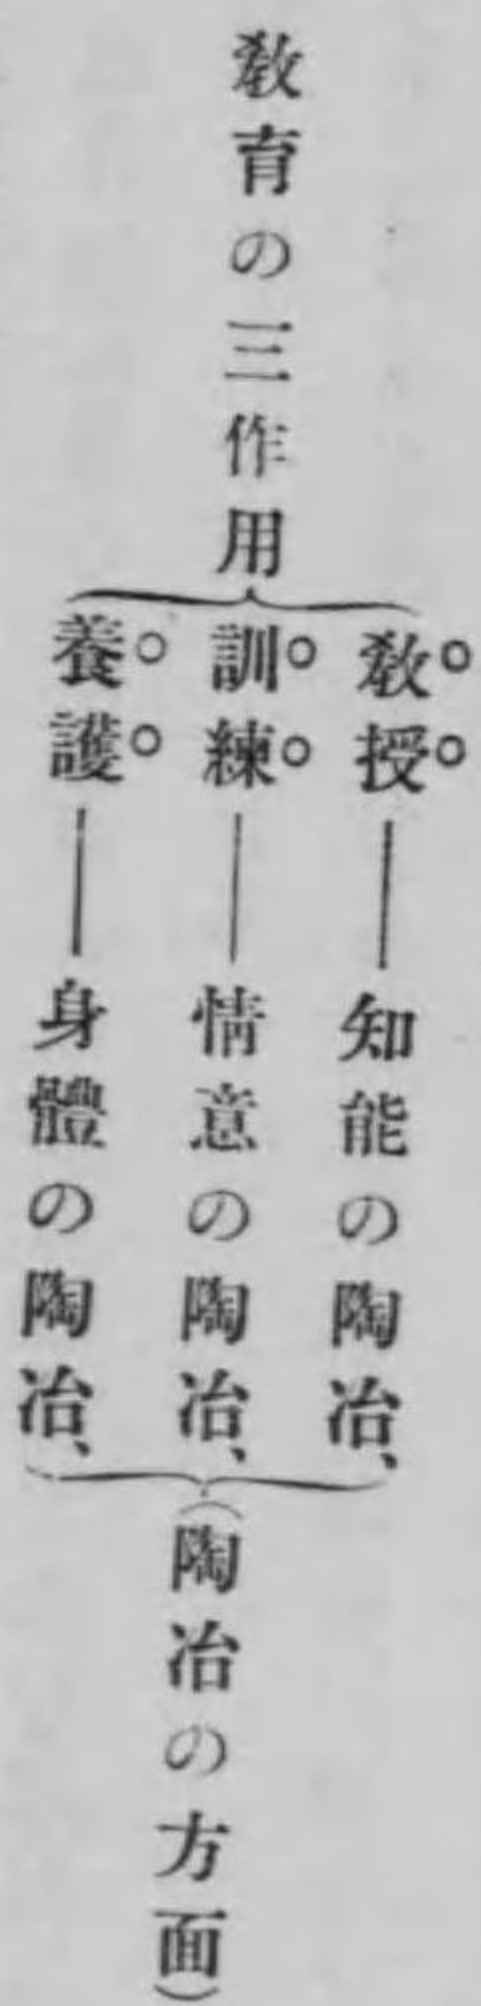 教育の三作用
教授――知能の陶冶、
訓練――情意の陶冶、
養護――身體の陶冶、
(陶冶の方面)